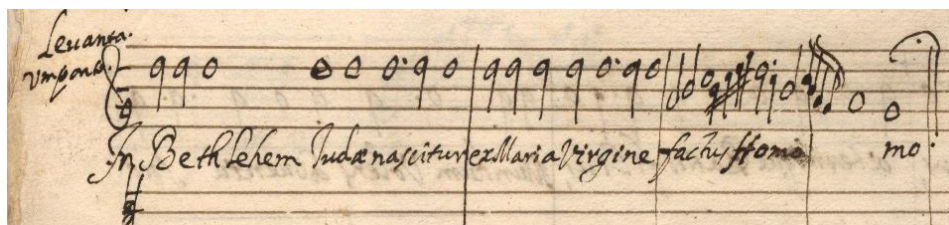 Levanta.
um ponto.
In Bethlehem Judæ nascitur ex Maria Virgine factus homo
mo.